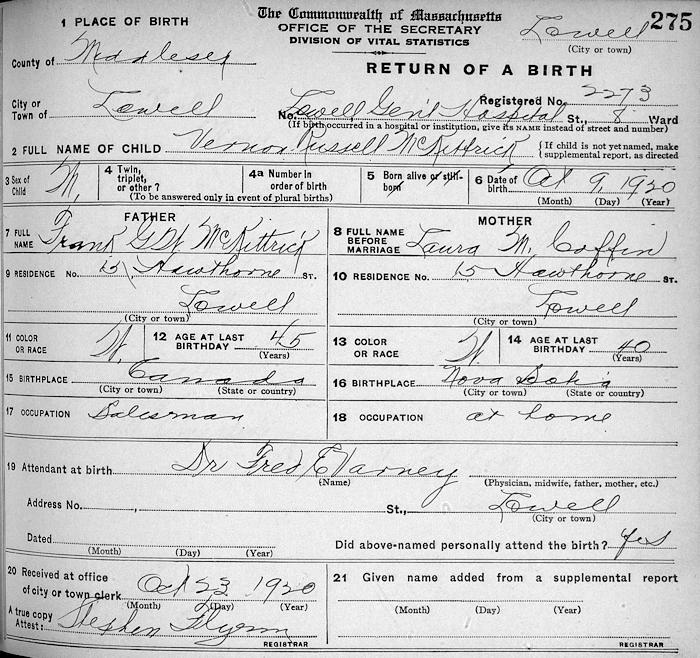 1 PLACE OF BIRTH
The Commonwealth of Massachusetts
OFFICE OF THE SECRETARY
DIVISION OF VITAL STATISTICS
Lowell 275
(City or town)
County of Middlesex
RETURN OF A BIRTH
Registered No. 2273
City or Town of Lowell
No. Lowell Gen'l Hospital St., 8 Ward
(If birth occurred in a hospital or institution, give its NAME instead of street and number)
2 FULL NAME OF CHILD Vernon Russell McKittrick { If child is not yet named, make supplemental report, as directed
3 Sex of Child M. 4 Twin, triplet, or other? 4a Number in order of birth 5 Born alive or still-born 6 Date of birth Oct 9, 1920
(To be answered only in event of plural births) (Month) (Day) (Year)
FATHER
7 FULL NAME Frank G W McKittrick
MOTHER
8 FULL NAME BEFORE MARRIAGE Laura M. Coffin
9 RESIDENCE No. 15 Hawthorne ST.
Lowell
(City or town)
10 RESIDENCE No. 15 Hawthorne ST.
Lowell
(City or town)
11 COLOR OR RACE W. 12 AGE AT LAST BIRTHDAY 45
(Years)
13 COLOR OR RACE W 14 AGE AT LAST BIRTHDAY 40
(Years)
15 BIRTHPLACE Canada
(City or town) (State or country)
16 BIRTHPLACE Nova Scotia
(City or town) (State or country)
17 OCCUPATION Salesman
18 OCCUPATION at home
19 Attendant at birth Dr Fred E Varney
(Name) (Physician, midwife, father, mother, etc.)
Address No. , St., Lowell
(City or town)
Dated
(Month) (Day) (Year)
Did above-named personally attend the birth? Yes
20 Received at office of city or town clerk Oct 23 1920
(Month) (Day) (Year)
A true copy
Attest: Stephen Flynn
REGISTRAR
21 Given name added from a supplemental report
(Month) (Day) (Year)
REGISTRAR